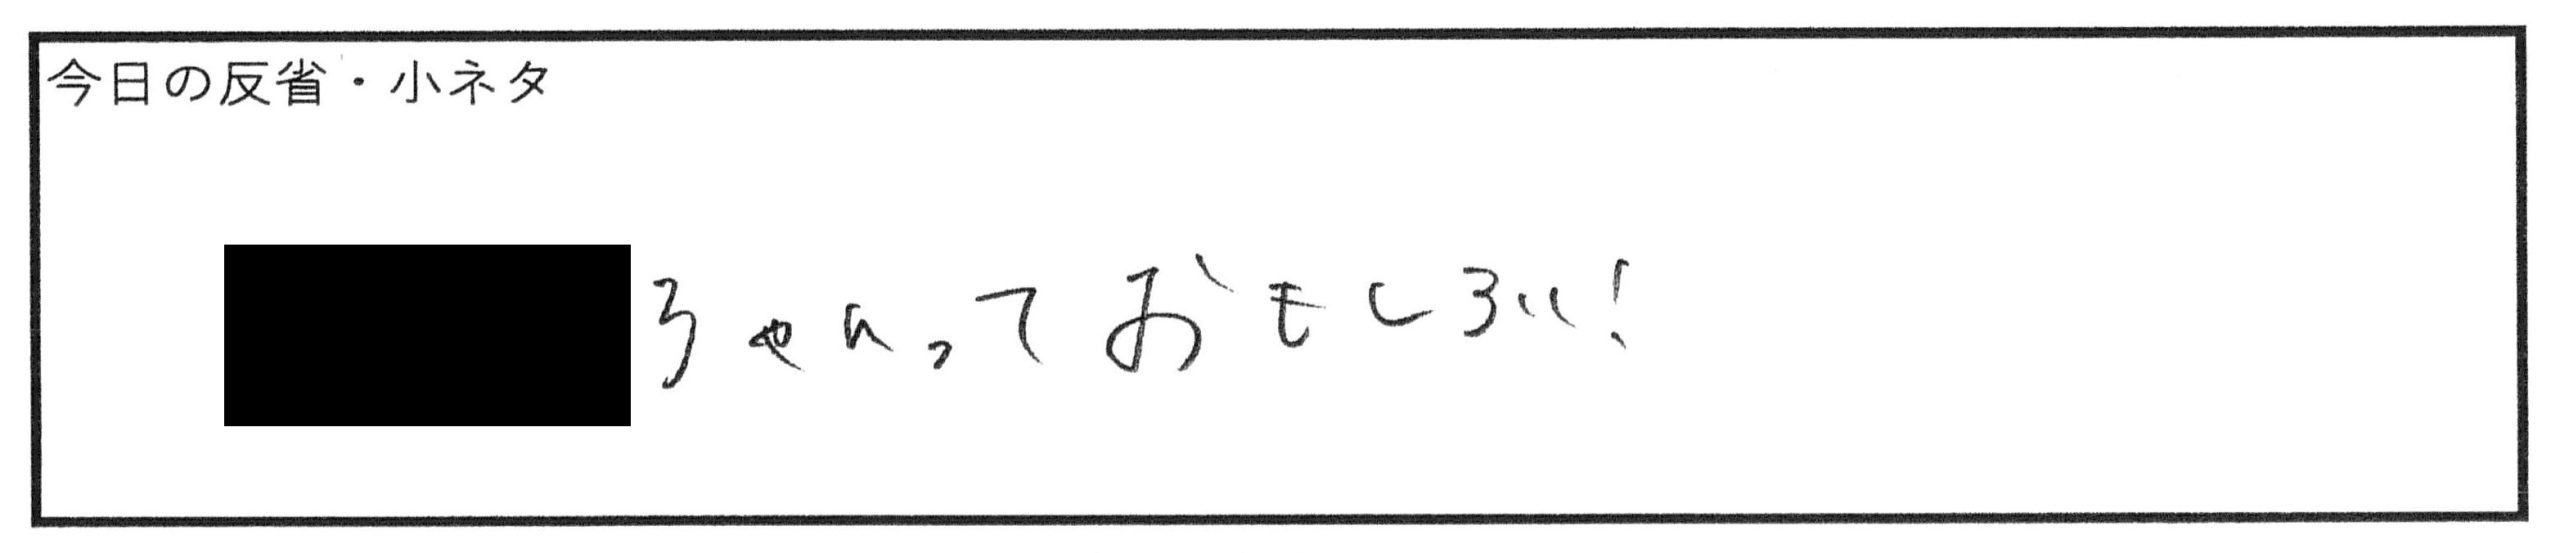 今日の反省・小ネタ
ちゃんっておもしろい!